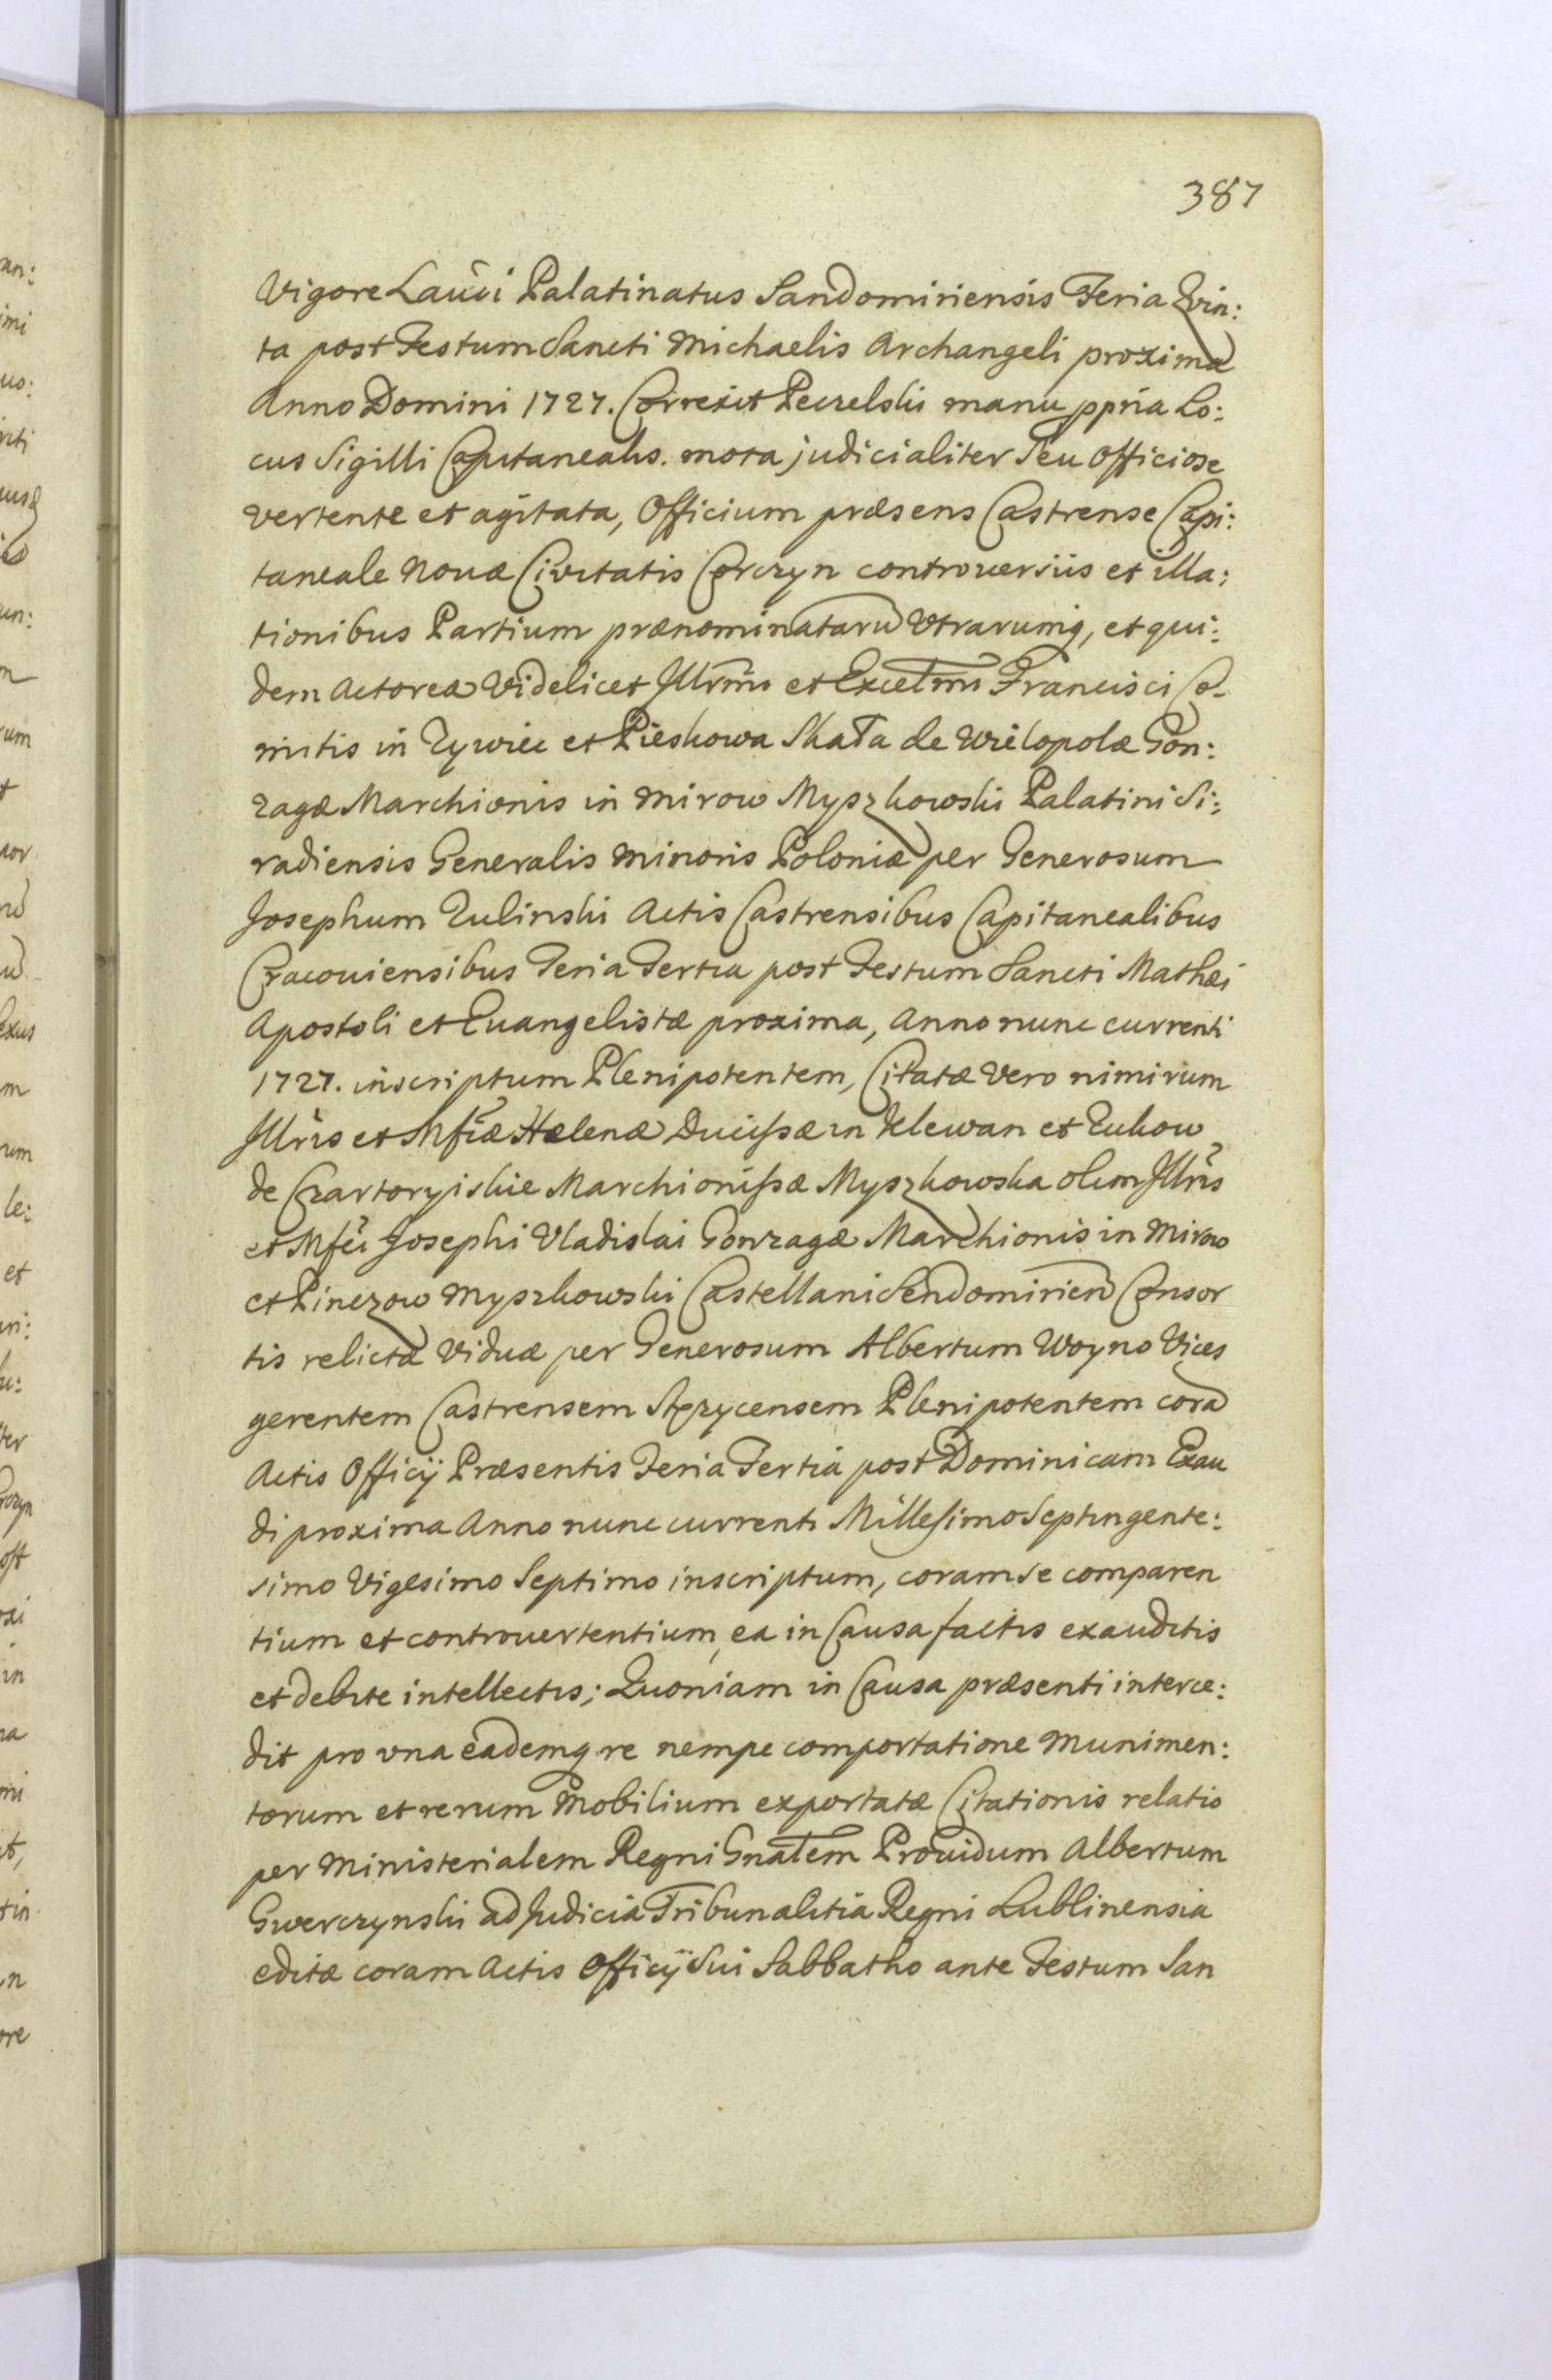 387
Vigore Laudi Palatinatus Sandomiriensis Feria Qvin:
ta post Festum Sancti Michaelis Archangeli proxima
Anno Domini 1727. Correxit Peczelski manu ppria Lo:
cus Sigilli Capitanealis. mota judicialiter Seu Officiose
vertente et agitata, Officium præsens Castrense Capi:
taneale Novæ Civitatis Corczyn controversiis et illa:
tionibus Partium prænominataru Utrarumq, et qui:
dem Actoreæ Videlicet Illrmi et Excelmi Francisci Co-
mitis in Zywiec et Pieskowa Skała de Wielopole Gon:
zagæ Marchionis in Mirow Myszkowski Palatini Si:
radiensis Generalis Minoris Poloniæ per Generosum
Josephum Zulinski Actis Castrensibus Capitanealibus
Cracoviensibus Feria Tertia post Festum Sancti Mathæi
Apostoli et Evangelistæ proxima, Anno nunc currenti
1727. inscriptum Plenipotentem, Citatæ vero nimirum
Illris et Mficæ Hælenæ Ducissæ in Klewan et Zukow
de Czartoryiskie Marchionissæ Myszkowska olim Illris
et Mfci Josephi Vladislai Gonzagæ Marchionis in Mirow
et Pinczow Myszkowski Castellani Sendomirien Consor
tis relictæ Viduæ per Generosum Albertum Woyno Vices
gerentem Castrensem Stężycensem Plenipotentem cora
Actis Officÿ Præsentis Feria Tertia post Dominicam Exau
di proxima Anno nunc currenti Millesimo Septingente:
simo Vigesimo Septimo inscriptum, coram se comparen
tium et controvertentium, ea in Causa factis exauditis
et debite intellectis; Quoniam in Causa præsenti interce:
dit pro vna eademq re nempe comportatione Munimen:
torum et rerum Mobilium exportatæ Citationis relatio
per Ministerialem Regni Gnalem Providum Albertum
Gwerczynski ad Judicia Tribunalitia Regni Lublinensia
editæ coram Actis Officÿ Sui Sabbatho ante Festum San